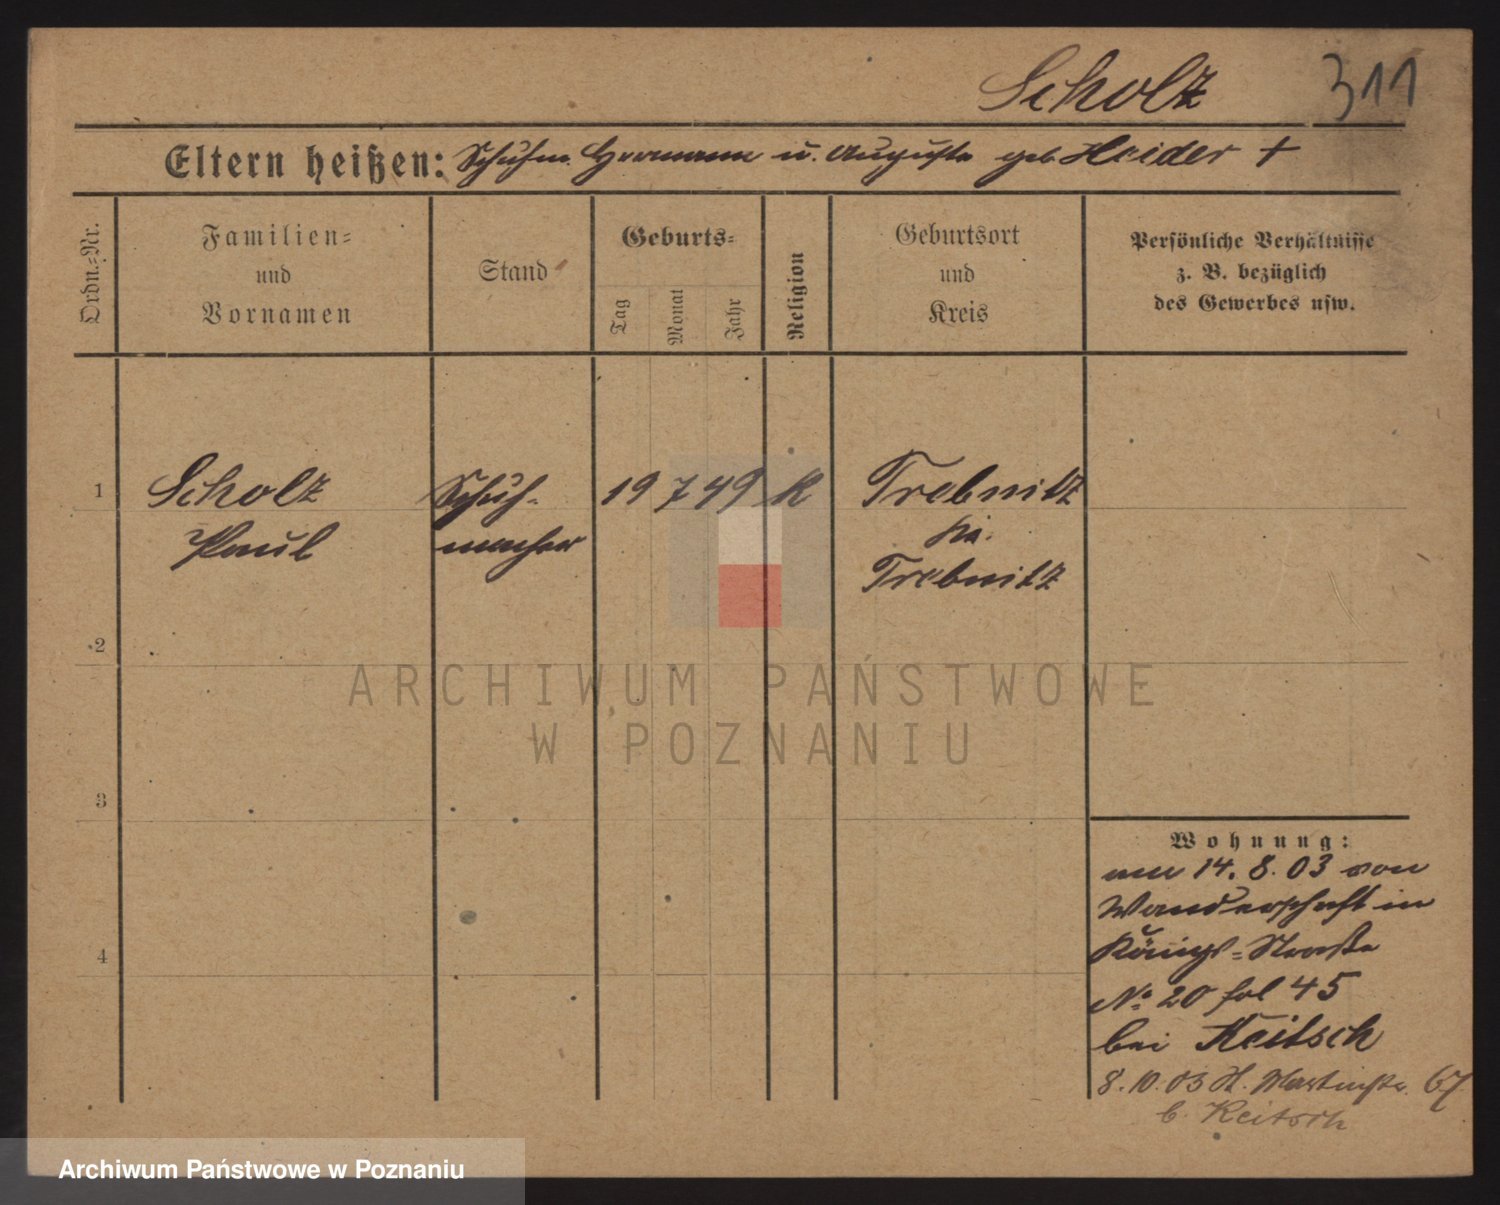 Scholz 311
Eltern heißen: Schuhm. Hermann u. Auguste geb. Heider +
Ordn.=Nr.
Familien=
und
Vornamen
Stand
Geburts=
Tag
Monat
Jahr
Religion
Geburtsort
und
Kreis
Persönliche Verhältnisse
z. B. bezüglich
des Gewerbes usw.
1 Scholz Schuh- 19 7 49 K Trebnitz
Paul macher Kr.
Trebnitz
2
ARCHIWUM PAŃSTWOWE
W POZNANIU
3
Wohnung:
14. 8. 03 von
Wanderschaft in
4
Königs=Straße
No 20 fol 45
bei Keitsch
8. 10. 03 St. Martinstr. 67
b. Keitsch
Archiwum Państwowe w Poznaniu